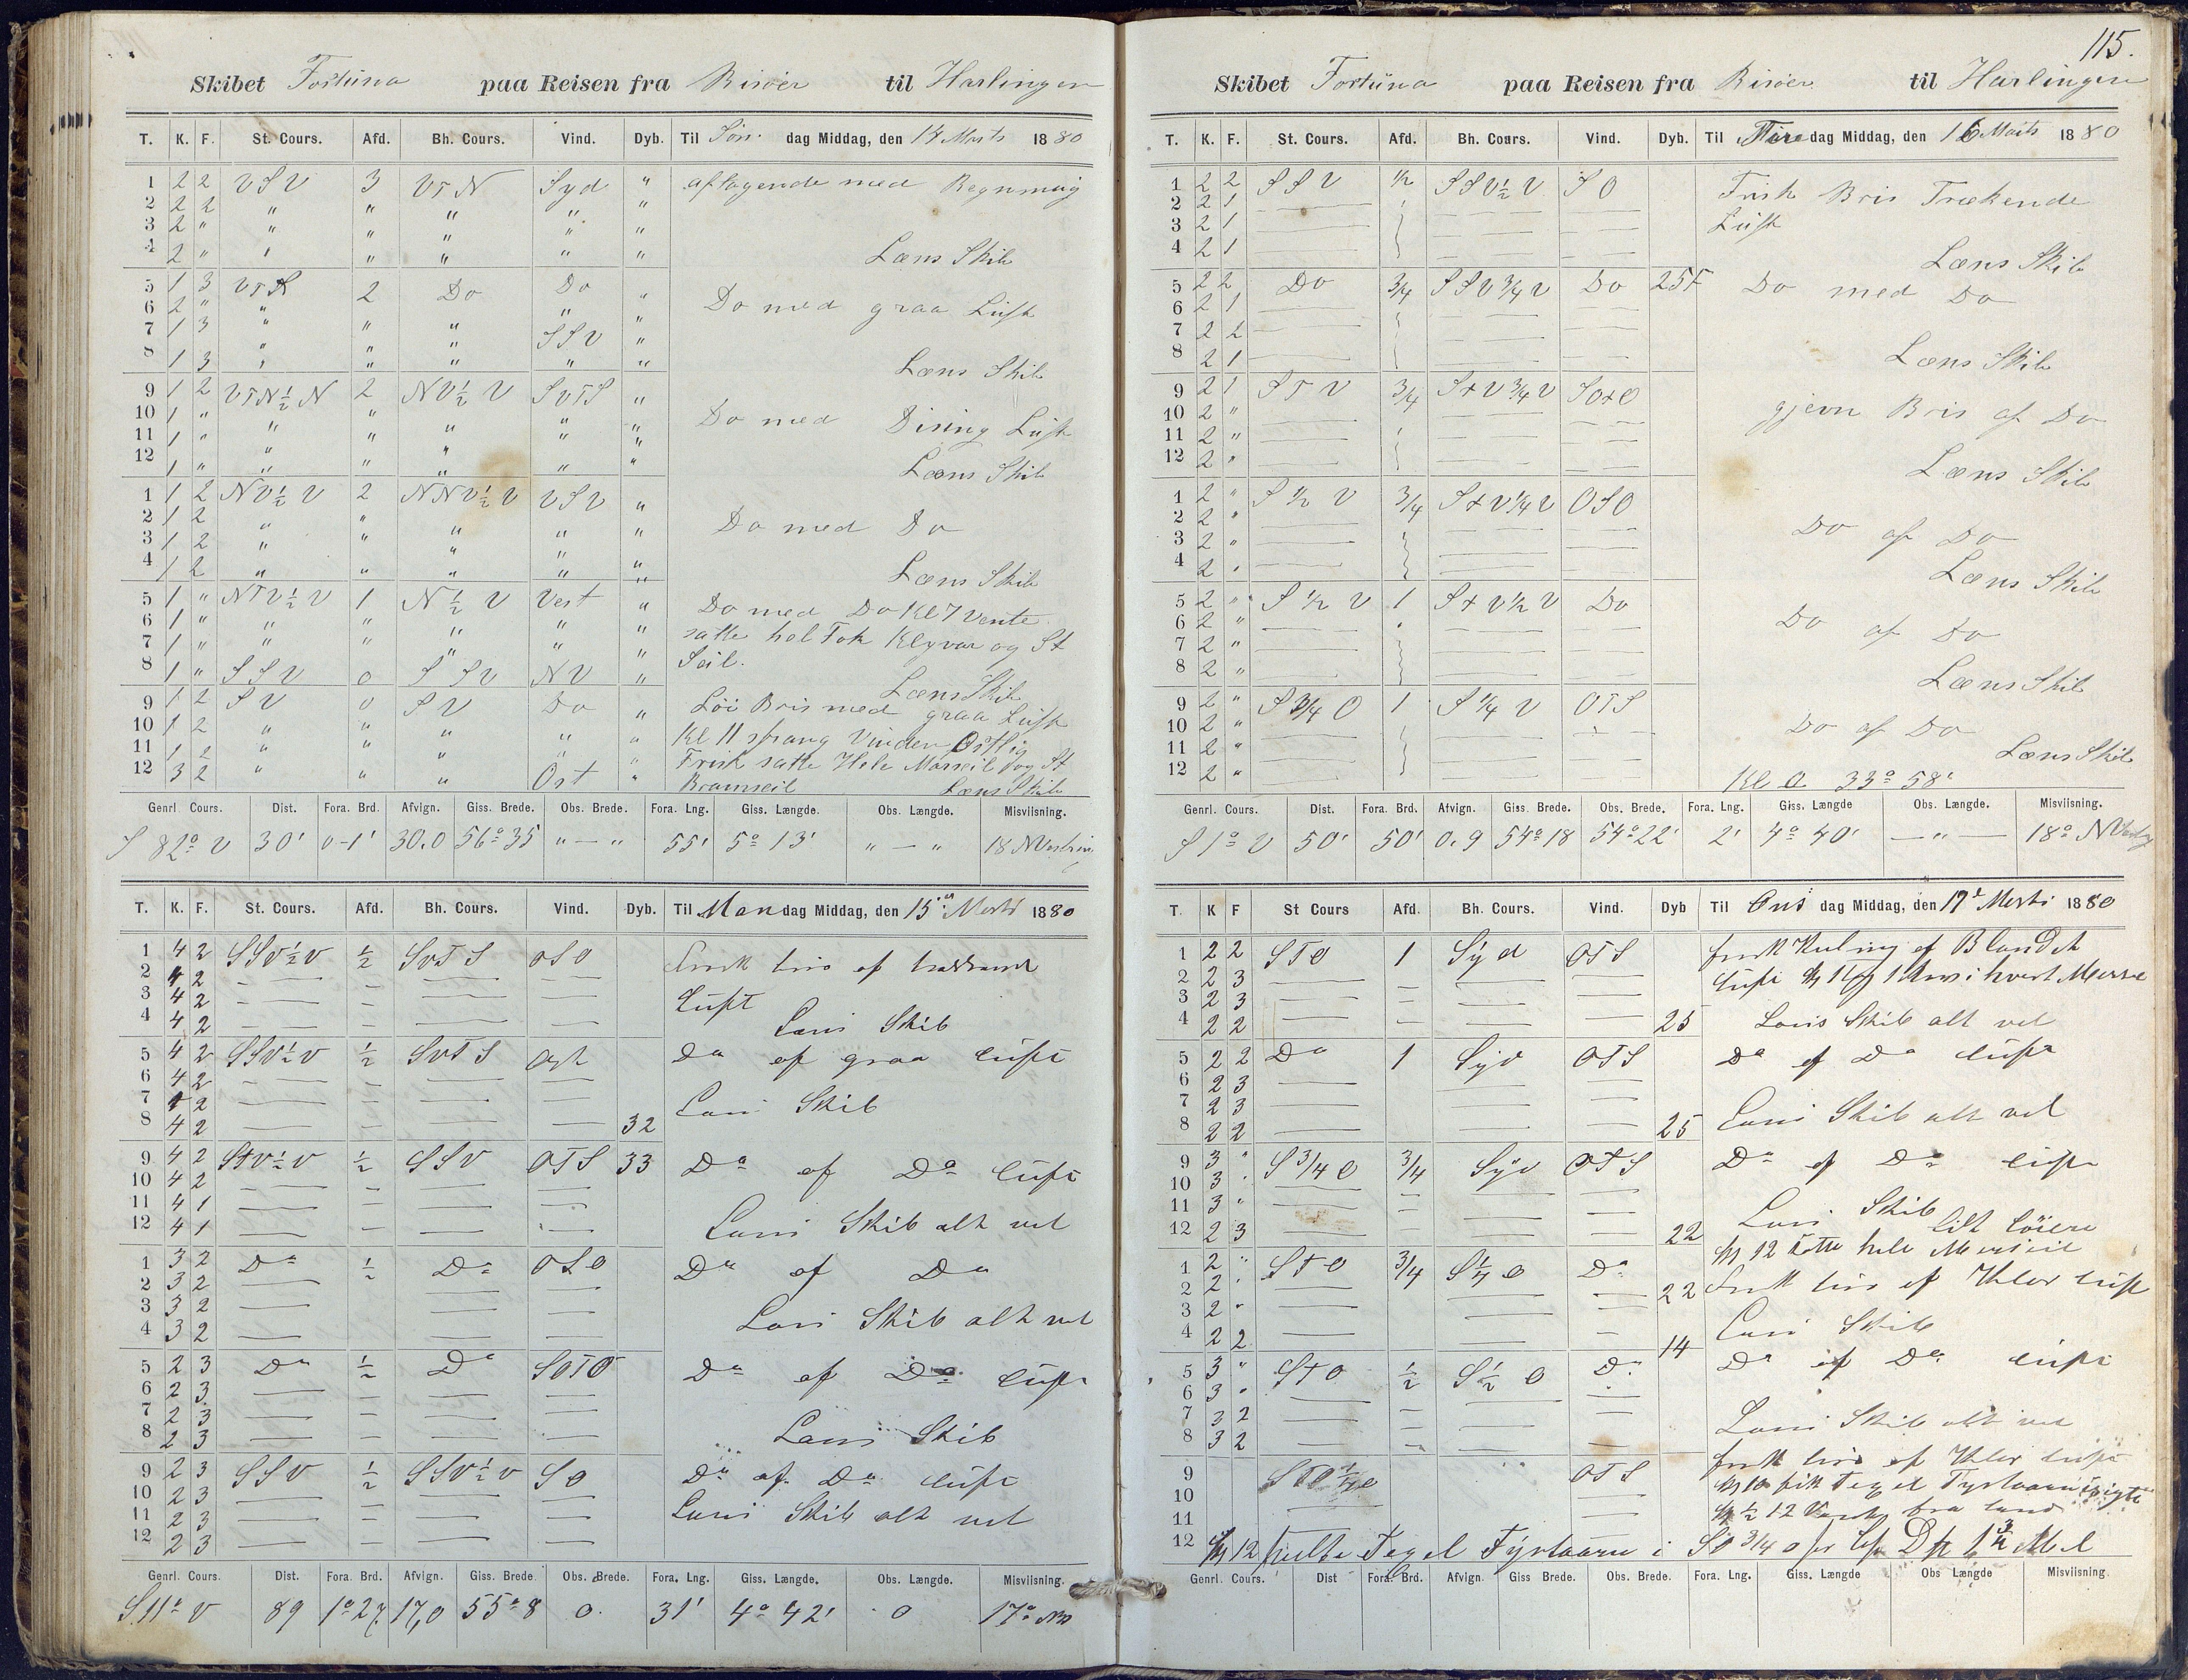 Skibet Fortuna paa Reisen fra Risöer til Harlingen
T. K. F. St. Cours. Afd. Bh. Cours. Vind. Dyb. Til Søn dag Middag, den 14 Marts 1880
1 2 2 VSV 3 VTN Syd " aftagende med Regnmug
2 2 2 " " " " "
3 2 " " " " " "
4 2 " " " " " " Læns Skib
5 1 3 VTS 2 Do Do " Do med graa Luft
6 2 " " " " " "
7 1 3 " " " SSV "
8 1 3 " " " " " Læns Skib
9 1 2 VTN½N 2 NV½V SVTS "
10 1 " " " " " " Do med Dising Luft
11 1 " " " " " "
12 1 " " " " " " Læns Skib
1 1 2 NV½V 2 NNV½V VSV "
2 1 2 " " " " " Do med Do
3 1 2 " " " "
4 1 2 " " " " " Læns Skib
5 1 " NTV½V 1 N½V Vest " Do med Do Kl 7 vente
6 1 " " " " " " satte hel Fok Klyver og St
7 1 " " " " " " Seil.
8 1 " SSV 0 SSV NV " Læns Skib
9 1 2 SV 0 SV Do " Löi Bris med graa Luft
10 1 2 " " " " " Kl 11 sprang Vinden Östlig
11 1 2 " " " " " Frisk satte Hele Mærseil og St
12 3 2 " " " Ost " Bramseil Læns Skib
Genrl. Cours. Dist. Fora. Brd. Afvign. Giss. Brede. Obs. Brede. Fora. Lng. Giss. Længde. Obs. Længde. Misviisning.
S 82° V 30' 0-1' 30.0 56°35 " — " 55' 5° 13' " — " 18 N
T. K. F. St. Cours. Afd. Bh. Cours. Vind. Dyb. Til Man dag Middag, den 15 Marts 1880
1 4 2 SSV½V ½ SVTS OSO Frisk bris af
2 4 2
3 4 2 Luft
4 4 2 Læns Skib
5 4 2 SSV½V ½ SVTS Ost Do af graa Luft
6 4 2
7 4 2 Læns Skib
8 4 2 32
9 4 2 STV½V ½ SSV OTS 33 Do af Do Luft
10 4 2
11 4 1
12 4 1 Læns Skib alt vel
1 3 2 Do ½ Do OSO Do af Do
2 3 2
3 3 2 Læns Skib alt vel
4 3 2
5 2 3 Do ½ Do SOTO Do af Do Luft
6 2 3
7 2 3
8 2 3 Læns Skib
9 2 3 SSV ½ SSV½V SO Do af Do Luft
10 2 3
11 2 3 Læns Skib alt vel
12 2 3
Genrl. Cours. Dist. Fora. Brd. Afvign. Giss. Brede. Obs. Brede. Fora. Lng. Giss. Længde. Obs. Længde. Misviisning.
S 11° V 89 1°27 17,0 55°8 0. 31' 4° 42' 0 17°
115.
Skibet Fortuna paa Reisen fra Risöer til Harlingen
T. K. F. St. Cours. Afd. Bh. Cours. Vind. Dyb. Til Tirs dag Middag, den 16 Marts 1880
1 2 2 SSV ½ SSV½V SO Frisk Bris Trækende
2 2 1
3 2 1 Luft
4 2 1 Læns Skib
5 2 2 Do ¾ SSV¾V Do 25F Do med Do
6 2 1
7 2 2
8 2 1 Læns Skib
9 2 1 STV ¾ S+V¾V SO+O
10 2 " gjevn Bris af Do
11 2 "
12 2 " Læns Skib
1 2 " S½V ¾ S+V¼V OSO
2 2 " Do af Do
3 2 "
4 2 " Læns Skib
5 2 " S½V 1 S+V½V Do
6 2 " Do af Do
7 2 "
8 2 " Læns Skib
9 2 " S¾O 1 S¼V OTS
10 2 " Do af Do
11 2 " Læns Skib
12 2 " 33° 58'
Genrl. Cours. Dist. Fora. Brd. Afvign. Giss. Brede. Obs. Brede. Fora. Lng. Giss. Længde Obs. Længde. Misviisning.
S 1° V 50' 50' 0.9 54°18 54°22' 2' 4° 40' — " — 18° N
T. K F St Cours Afd. Bh. Cours. Vind. Dyb Til Ons dag Middag, den 17 Marts 1880
1 2 2 STO 1 Syd OTS frisk Kuling af Blandet
2 2 3 Luft
3 2 3
4 2 2 25 Læns Skib alt vel
5 2 2 Do 1 Syd OTS Do af Do Luft
6 2 3
7 2 3 Læns Skib alt vel
8 2 2 25
9 3 " S¾O ¾ Syd OTS Do af Do Luft
10 3 "
11 3 " Læns Skib
12 2 3 22 lidt löiere
1 2 " STO ¾ S¼O Do Kl 12 satte hele Merseil
2 2 " 22 Frisk bris af Klar Luft
3 2 " Læns Skib
4 2 2 14
5 3 " STO ½ S½O Do Do af Do Luft
6 3 "
7 3 2 Læns Skib alt vel
8 3 2
9 STO OTS frisk bris af Klar Luft
10 Kl 10 fik Tegel Fyrtaarn
11 Kl ½ 12 fra land
12 Kl 12 peilte Tegel Fyrtaarn i SO ¾ O Dist 1¾ Mil
Genrl. Cours. Dist Fora. Brd. Afvign. Giss Brede. Obs. Brede. Fora. Lng. Giss. Længde Obs Længde Misviisning.